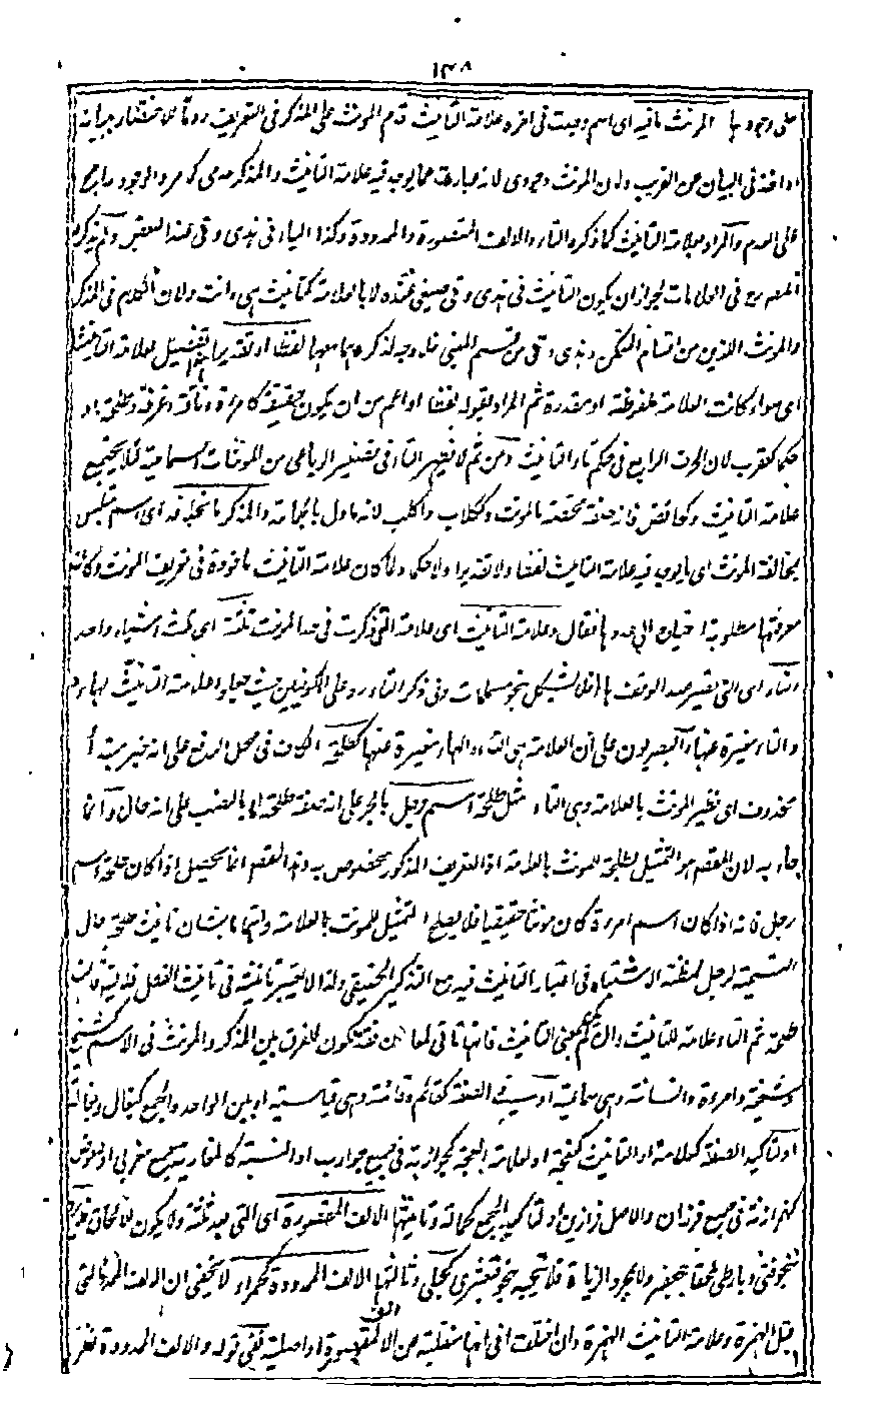 ١٣٨
على وجودها المؤنث ما فيه اى اسم وجدت فى اخره علامة التأنيث قدم المؤنث على المذكر فى التعريف روما للاختصار ببيانه
فى البيان عن القريب ولان المؤنث وجودى لانه عبارة عما يوجد فيه علامة التأنيث والمذكر عدمى كما مر والوجود راجح
على العدم والمراد بعلامة التأنيث كما ذكر والتاء والالف المقصورة والممدودة وكذا الياء فى هذى وفى عند البعض ولم يذكره
المصرح فى العلامات لجواز ان يكون التأنيث فى هذى وفى صيغى عنده لا بالعلامة كتأنيث هى وانت ولان الكلام فى المذكر
والمؤنث اللذين من اقسام المتمكن وهذى وفى من قسم المبنى فلا وجه لذكرهما ههنا لفظا او تقديرا تفصيل لعلامة التأنيث
اى سواء كانت العلامة ملفوظة او مقدرة ثم المراد بقوله لفظا اعم من ان يكون حقيقة كامرأة وناقة وغرفة وطلحة او
حكما كعقرب لان الحرف الرابع فى حكم تاء التأنيث ومن ثم لا تظهر التاء فى تصغير الرباعى من المؤنثات السماعية لئلا يجتمع
علامة التأنيث وكحائض فانه صفة مختصة بالمؤنث وككلاب واكلب لانه ماول بالجماعة والمذكر ما بخلافه اى اسم متلبس
بمخالفة المؤنث اى ما يوجد فيه علامة التأنيث لفظا ولا تقديرا ولا حكما ولما كان علامة التأنيث ماخوذة فى تعريف المؤنث وكانت
معرفتها مطلوبة احتيج الى عدها فقال وعلامة التأنيث اى علامة التى ذكرت فى حد المؤنث ثلثة اى ثلث اشياء واحد
التاء اى التى تصير عند الوقف هاء فلا يشكل بنحو مسلمات وفى ذكر التاء رد على الكوفيين حيث جعلوا علامة التأنيث الهاء
والتاء مغيرة عنها والبصريون على ان العلامة هى التاء والهاء مغيرة عنها كطلحة الكاف فى محل الرفع على انه خبر مبتدأ
محذوف اى نظير المؤنث بالعلامة وهى التاء مثل طلحة اسم رجل بالجر على انه صفة طلحة او بالنصب على انه حال وانما
جاء به لان المقصود هو التمثيل بطلحة للمؤنث بالعلامة اذ التعريف المذكور مخصوص به وهذا القصد انما يحصل اذا كان طلحة اسم
رجل فانه اذا كان اسم امرأة كان مؤنثا حقيقيا فلا يصلح التمثيل للمؤنث بالعلامة بشان تأنيث طلحة حال
التسمية لرجل لمظنة الاشتباه فى اعتبار التأنيث فيه مع التذكير الحقيقى ولذا لا يعتبر تأنيثه فى تأنيث الفعل فلا يقال قالت
طلحة ثم التاء علامة للتأنيث وان لم يكن بمعنى التأنيث فانها تأتى لمعان فقد تكون للفرق بين المذكر والمؤنث فى الاسم كشيخ
وشيخة وامرء وامرأة وانسان وانسانة وهى سماعية او فى الصفة كقائم وقائمة وهى قياسية او بين الواحد والجمع كبغال وبغالة
او لتأكيد الصفة كعلامة او التأنيث كنعجة او لعلامة العجمة كجواربة فى جمع جوارب او النسبة كالمغاربة جمع مغربى او لعوض
كفرازنة فى جمع فرزان والاصل فرازين او لتأكيد الجمع كجمالة وثانيتها الالف المقصورة اى التى بعد ثلثة ولا يكون للالحاق فخرج
نحو فتى وبارطى ملحقا بجعفر ولا لمجرد الزيادة فلا يتجه نحو قبعثرى كحبلى وثالثها الالف الممدودة كحمراء لا يخفى ان الالف الممدودة التى
قبل الهمزة وعلامة التأنيث الهمزة وان اختلف فى انها منقلبة عن الالف المقصورة او اصلية ففى قوله والالف الممدودة نظر